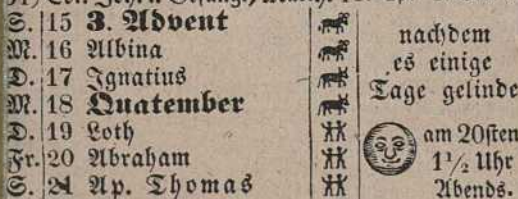 S. 15 3. Advent
M. 16 Albina
D. 17 Ignatius
M. 18 Quatember
D. 19 Loth
Fr. 20 Abraham
S. 21 Ap. Thomas
nachdem
es einige
Tage gelinde
am 20sten
1 1/2 Uhr
Abends.